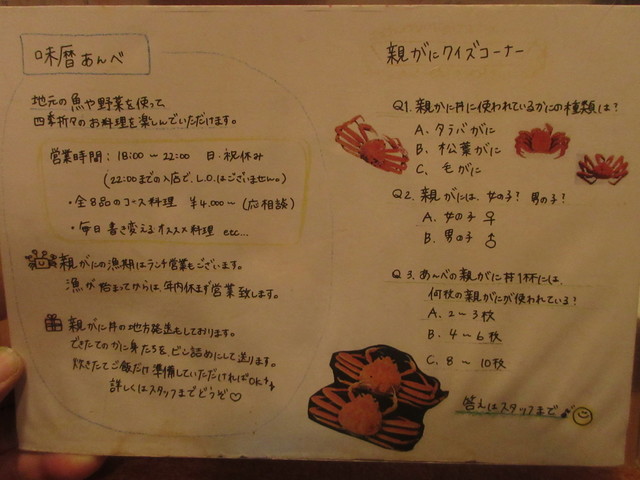 味暦あんべ
地元の魚や野菜を使って
四季折々のお料理を楽しんでいただけます。
営業時間：18:00～22:00 日・祝休み
(22:00までの入店で、L.O.はございません。)
・全8品のコース料理 ¥4,000～(応相談)
・毎日書き変えるオススメ料理 etc...
親がにの漁期はランチ営業もございます。
漁が始まってからは、年内休まず営業致します。
親がに丼の地方発送もしております。
できたてのかに身たちを、ビン詰めにして送ります。
炊きたてご飯だけ準備していただければOK!!
詳しくはスタッフまでどうぞ♡
親がにクイズコーナー
Q1. 親がに丼に使われているかにの種類は？
A. タラバがに
B. 松葉がに
C. 毛がに
Q2. 親がには、女の子？ 男の子？
A. 女の子♀
B. 男の子♂
Q3. あんべの親がに丼1杯には、
何枚の親がにが使われている？
A. 2～3枚
B. 4～6枚
C. 8～10枚
答えはスタッフまで♪